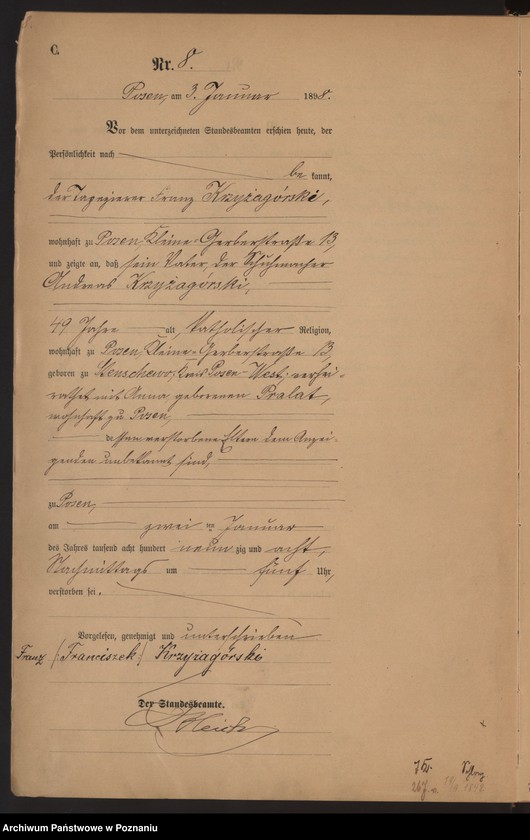 C.
Nr. 8.
Posen, am 3. Januar 1898.
Vor dem unterzeichneten Standesbeamten erschien heute, der
Persönlichkeit nach
be kannt,
der Tapezierer Franz Krzyżagórski,
wohnhaft zu Posen, Kleine-Gerberstraße 13,
und zeigte an, daß sein Vater, der Schuhmacher
Andreas Krzyżagórski,
49 Jahre alt, katholischer Religion,
wohnhaft zu Posen, Kleine-Gerberstraße 13,
geboren zu Stenschewo, Kreis Posen West, verhei-
rathet mit Anna geborenen Pralat,
wohnhaft zu Posen,
dessen verstorbene Eltern dem Anzei-
genden unbekannt sind,
zu Posen,
am zwei ten Januar
des Jahres tausend acht hundert neun zig und acht,
Nachmittags um fünf Uhr,
verstorben sei.
Vorgelesen, genehmigt und unterschrieben
Franz (Franciszek) Krzyżagórski
Der Standesbeamte.
Archiwum Państwowe w Poznaniu